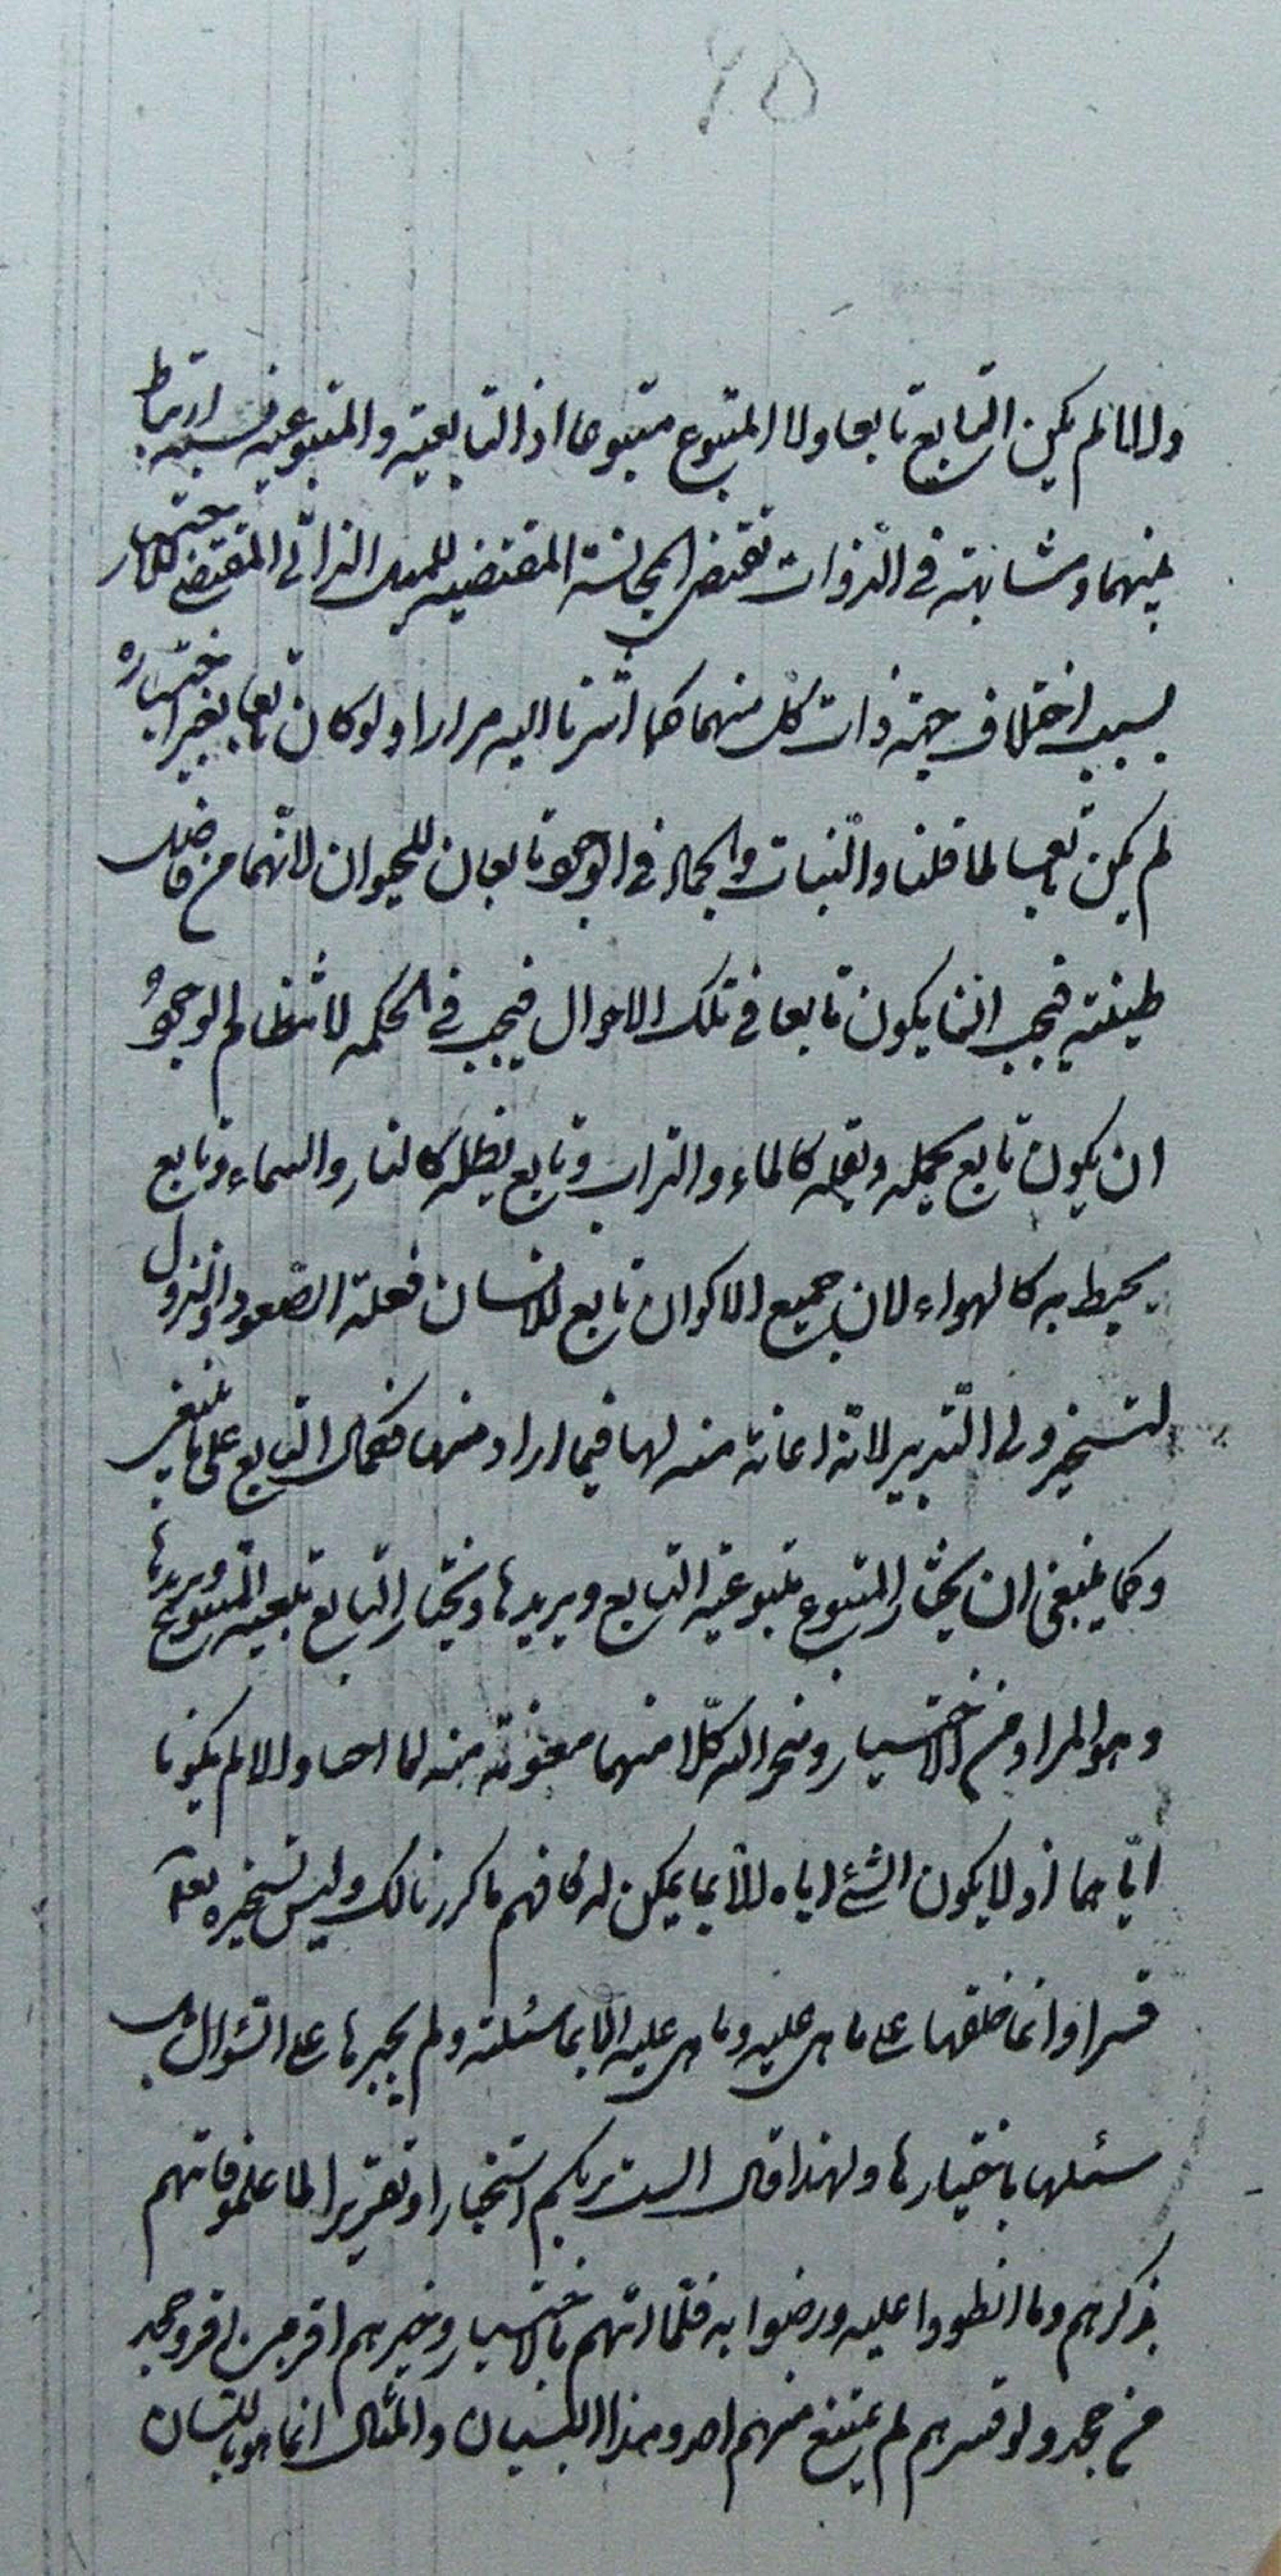 ٦٥
والا لما لم يكن التابع تابعا ولا المتبوع متبوعا اذ التابعية والمتبوعية نسبة ارتباط
بينهما ومشابهة في الذوات تقتضي المجانسة المقتضية للميل الذاتي المقتضي للاختيار
بسبب اختلاف جهة ذات كل منهما كما اشرنا اليه مرارا ولو كان تابعا بغير اختياره
لم يكن تابعا لما قلنا والنبات والجماد في الوجود تابعان للحيوان لانهما من فاضل
طينته فيجب انما يكون تابعا في تلك الاحوال فيجب في الحكمة لانتظام الوجود
ان يكون تابع يحمله ويقله كالماء والتراب وتابع يظله كالنار والسماء وتابع
يحيط به كالهواء لان جميع الاكوان تابع للانسان فعلة الصعود والنزول
لتسخير ولي التدبير لانه اعانة منه لها فيما اراد منها فكمال التابع على ما ينبغي
وكما ينبغي ان يختار المتبوع متبوعية التابع ويريدها ويختار التابع تابعية المتبوع ويريدها
وهو المراد من الاختيار ومنح الله كلا منهما معونة منه لما احبا والا لم يكونا
اياهما اذ لا يكون الشئ اياه الا بما يمكن له فافهم ما كررنا لك وليس تسخيره تعالى
قسرا وانما خلقها على ما هي عليه وما هي عليه الا بما سئلته ولم يجبرها على السؤال بل
سئلها باختيارها ولهذا قال الست بربكم استخبارا وتقريرا لما علموا فاتهم
بذكرهم وما انطووا عليه ورضوا به فلما اتهم بالاختيار وخيرهم اقر من اقر وجحد
من جحد ولو قسرهم لم يمتنع منهم احد وهذا البيان والمثال انما هو باللسان